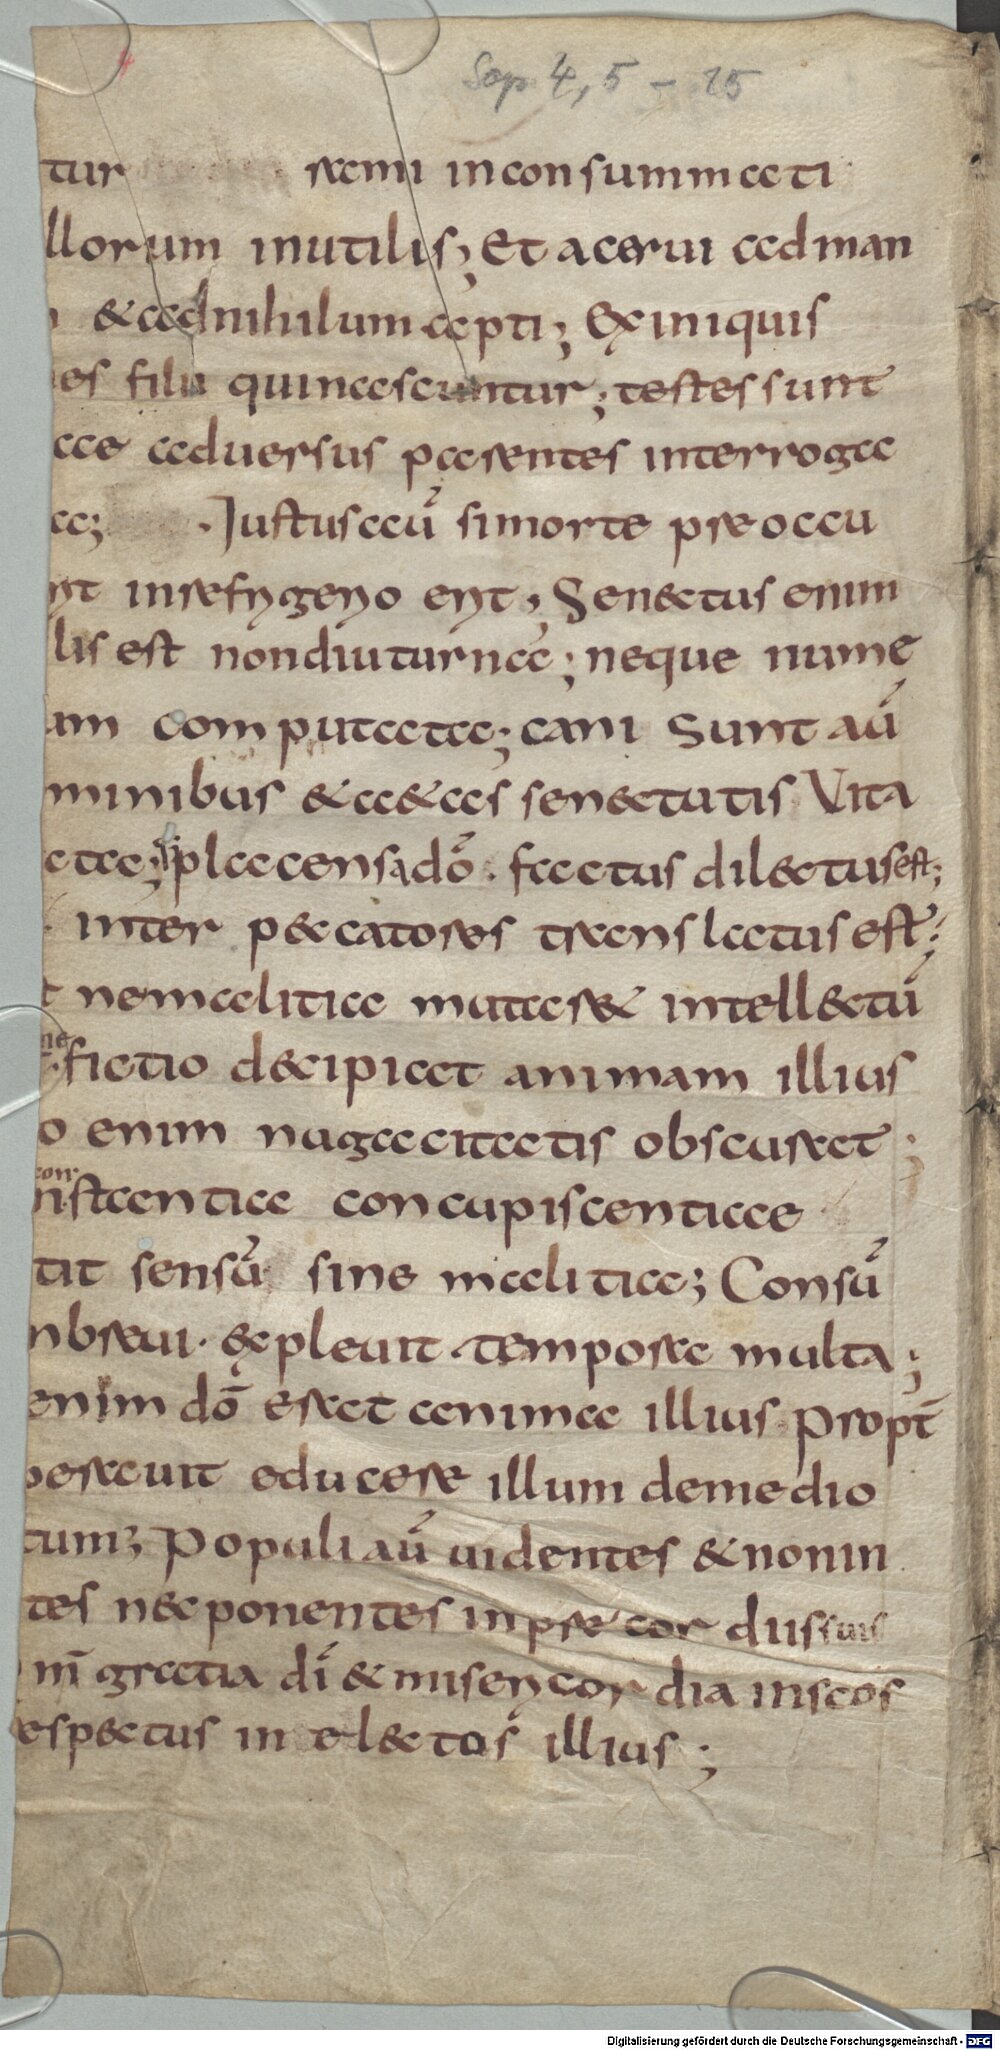 Sap 4, 5 – 15
tur rami inconsummati
llorum inutilis; Et acerui adman
& adnihilum apti; Ex iniquis
es filii qui nascuntur; testes sunt
ae aduersus parentes interroga
a; Iustus aū si morte preoccu
rit in refrigerio erit; Senectus enim
lis est non diuturna; neque nume
um computata; cani sunt aū
minibus & aetas senectutis Vita
ata; placens a dō factus dilectus est;
inter peccatores translatus est;
t ne malitia mutaret intellectū
ne fictio decipiat animam illius
o enim nugacitatis obscurat;
con
nstantia concupiscentiae
tit sensū sine malitia; Consū
n breui expleuit tempora multa;
enim dō erat anima illius Propt̄
perauit educere illum de medio
tum; Populi aū uidentes & non in
tes nec ponentes in precordiis suis
m̄ gratia dī & misericordia in scos
espectus in electos illius;
Digitalisierung gefördert durch die Deutsche Forschungsgemeinschaft - DFG